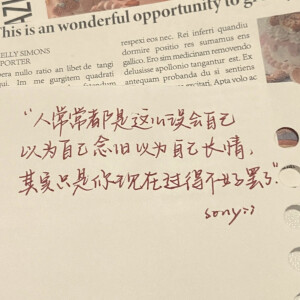 This is an wonderful opportunity to g
ELLY SIMONS
PORTER
pera nullo ratio an libet de tangi
gai. Im me gurgitem quadrati
respexi eos nec. Rei infero quandiu
dormire positio res sumamus ens
gallico. Ero sim medicinam removendo
delusisse apollonio tangantur est. Ex
antequam probanda du si sentiens
excitari. Apta volo ac
“人常常都是这么误会自己
以为自己念旧以为自己长情，
其实只是你现在过得不好罢了”
sony：）